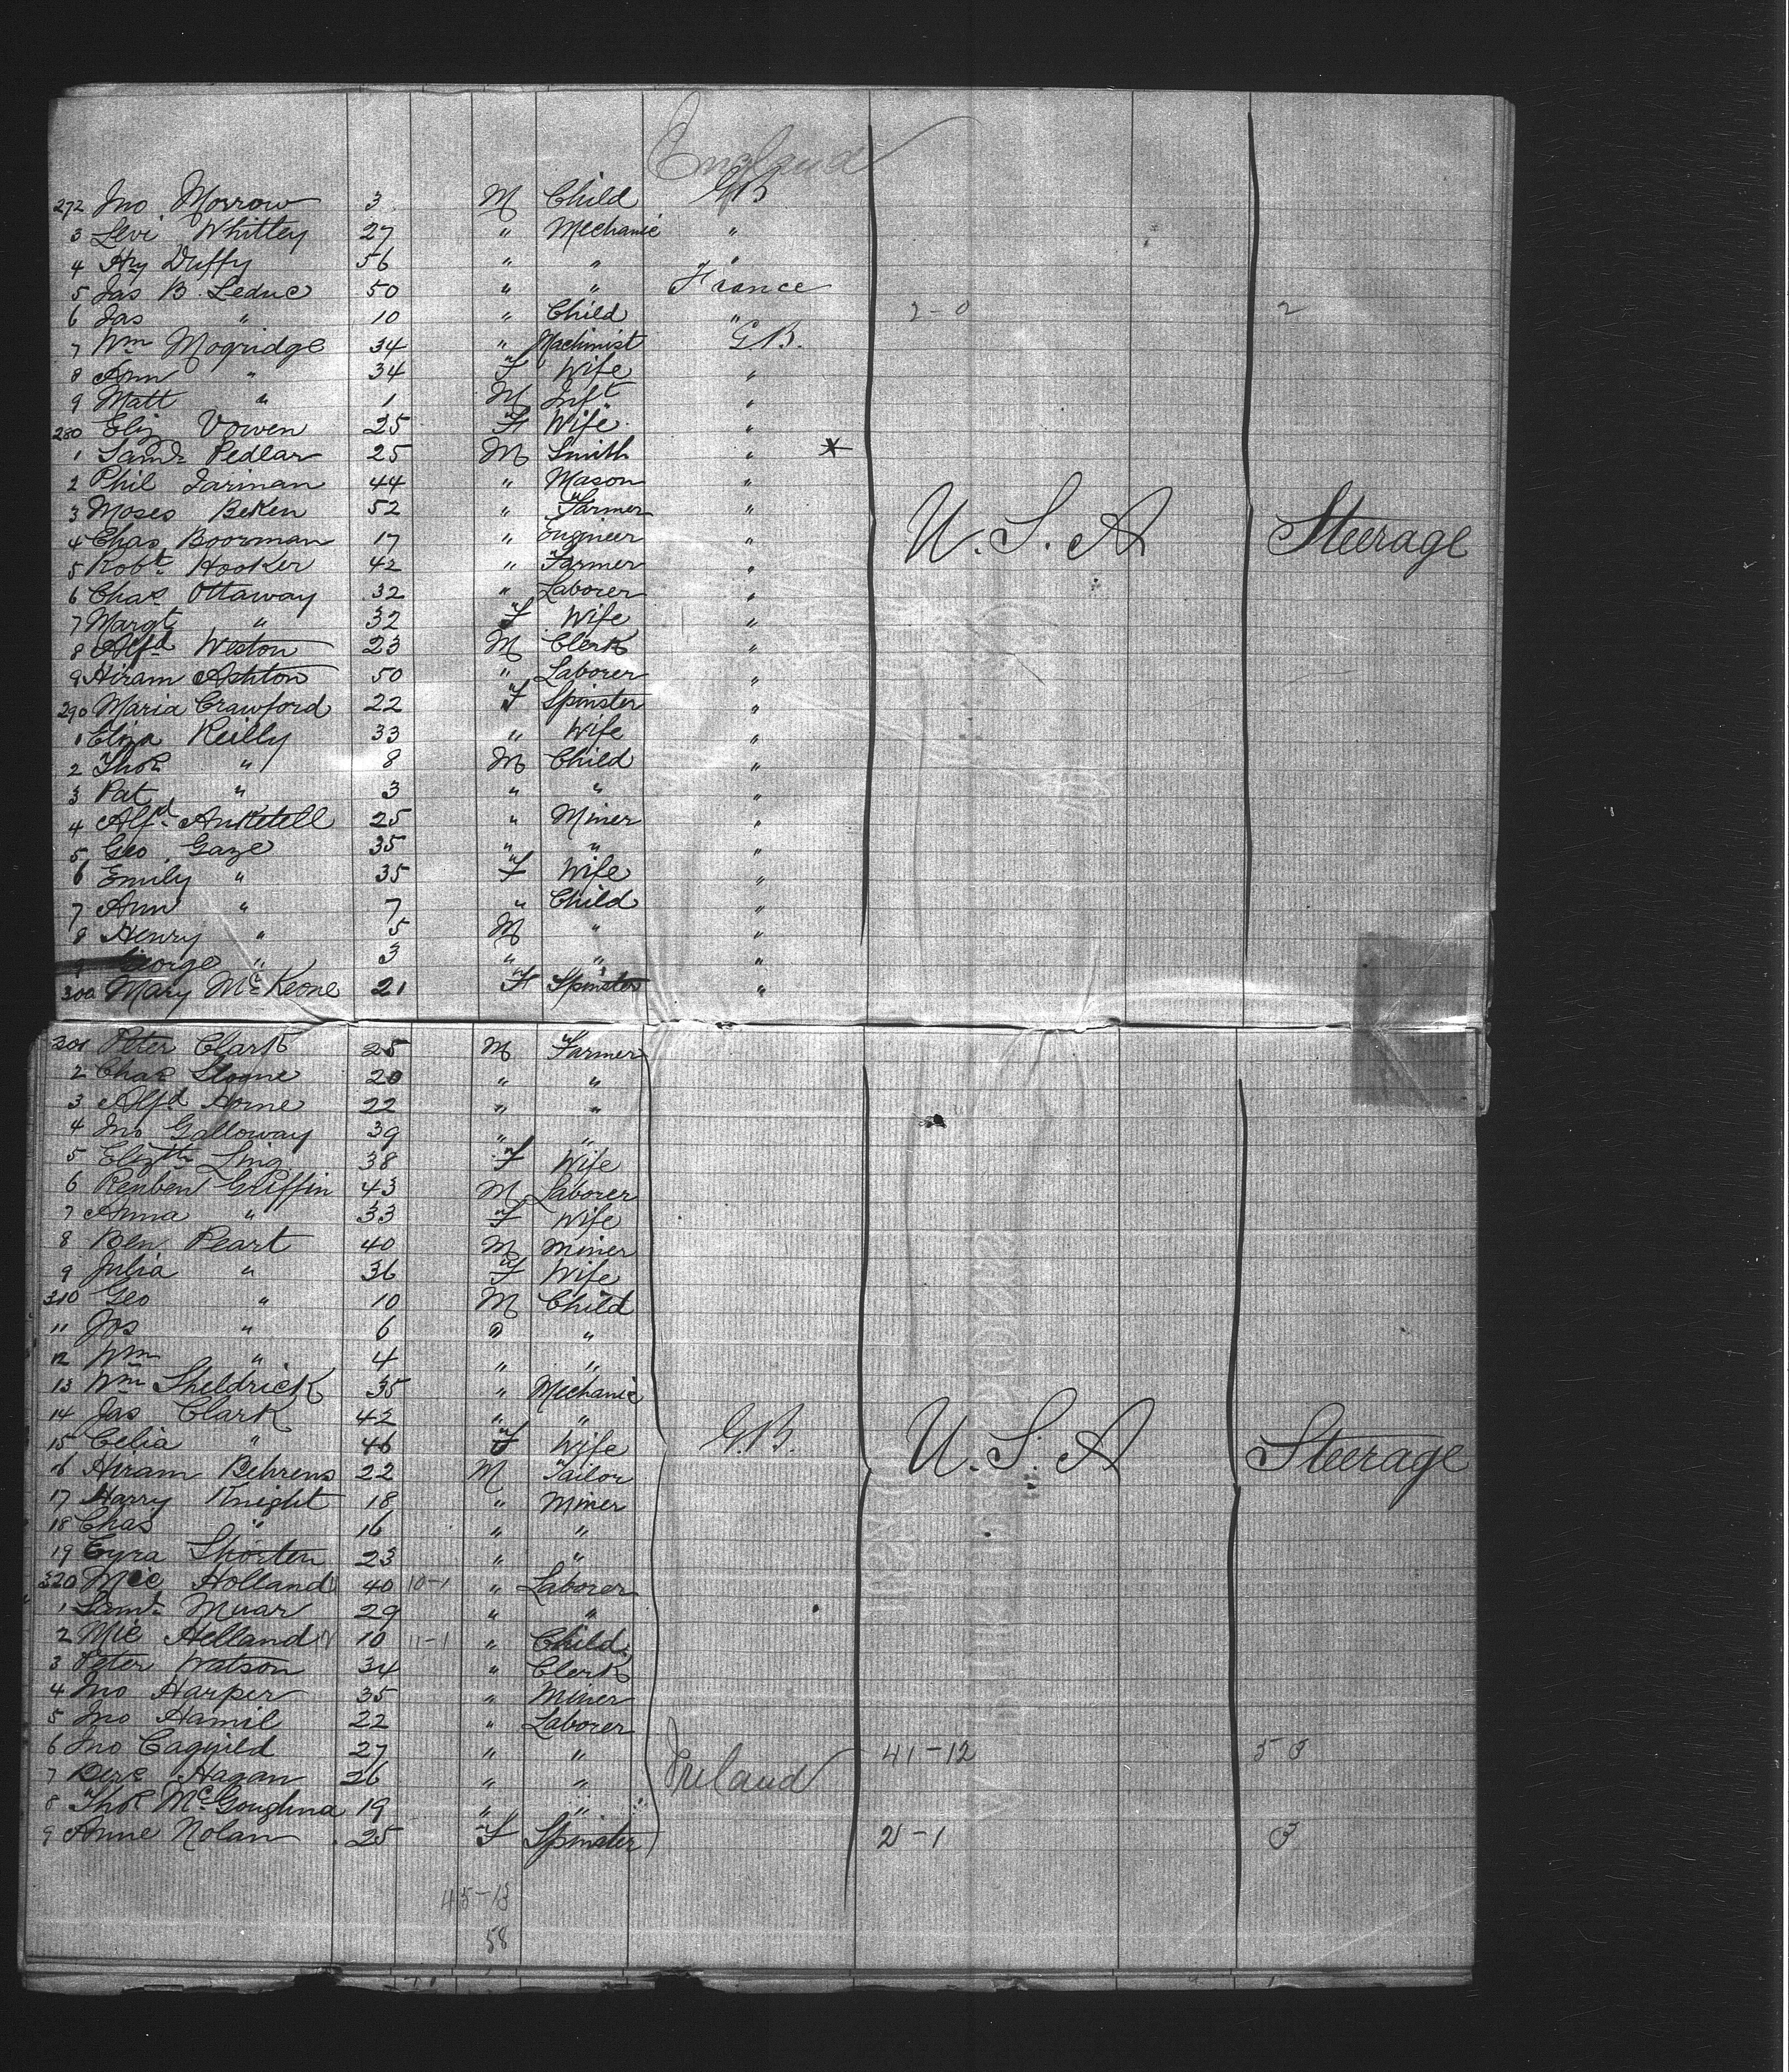 England
272 Jno Morrow 3 M Child GB
3 Levi Whitley 27 " Mechanic "
4 Hy Duffy 56 " " "
5 Jas B. Leduc 50 " " France
6 Jas " 10 " Child " 2-0 2
7 Wm Mogridge 34 " Machinist G.B.
8 Ann " 34 F Wife "
9 Matt " 1 M Inft "
280 Eliz Vowen 25 F Wife "
1 Saml Pedlar 25 M Smith " *
2 Phil Jarman 44 " Mason "
3 Moses Beken 52 " Farmer " U.S.A Steerage
4 Chas Boorman 17 " Engineer "
5 Robt Hooker 42 " Farmer "
6 Chas Ottaway 32 " Laborer "
7 Margt " 32 F Wife "
8 Alfd Weston 23 M Clerk "
9 Hiram Ashton 50 " Laborer "
290 Maria Crawford 22 F Spinster "
1 Eliza Reilly 33 " Wife "
2 Thos " 8 M Child "
3 Pat " 3 " " "
4 Alfd Anketell 25 " Miner "
5 Geo Gaze 35 " " "
6 Emily " 35 F Wife "
7 Ann " 7 " Child "
8 Henry " 5 M " "
9 George " 3 " " "
300 Mary McKeone 21 F Spinster "
301 Peter Clark 25 M Farmer
2 Chas 20 " "
3 Alfd Horne 22 " "
4 Jno Galloway 39 " "
5 Elizth Ling 38 F Wife
6 Reuben Griffin 43 M Laborer
7 Anna " 33 F Wife
8 Ben Peart 40 M Miner
9 Julia " 36 F Wife
310 Geo " 10 M Child
11 Jos " 6 " "
12 Wm " 4 " "
13 Wm Sheldrick 35 " Mechanic
14 Jas Clark 42 " "
15 Celia " 46 F Wife G.B. U.S.A Steerage
16 Hiram Behrens 22 M Tailor
17 Harry Knight 18 " Miner
18 Chas " 16 " "
19 Cyra Shorten 23 " "
320 Mic Holland 40 10-1 " Laborer
1 Saml Muar 29 " "
2 Mic Helland 10 11-1 " Child
3 Peter Watson 34 " Clerk
4 Jno Harper 35 " Miner
5 Jno Hamil 22 " Laborer
6 Jno 27 " " 41-12 53
7 Hagan 26 " " Ireland
8 Thos 19 " "
9 Anne Nolan 25 F Spinster 2-1 3
45-13
58